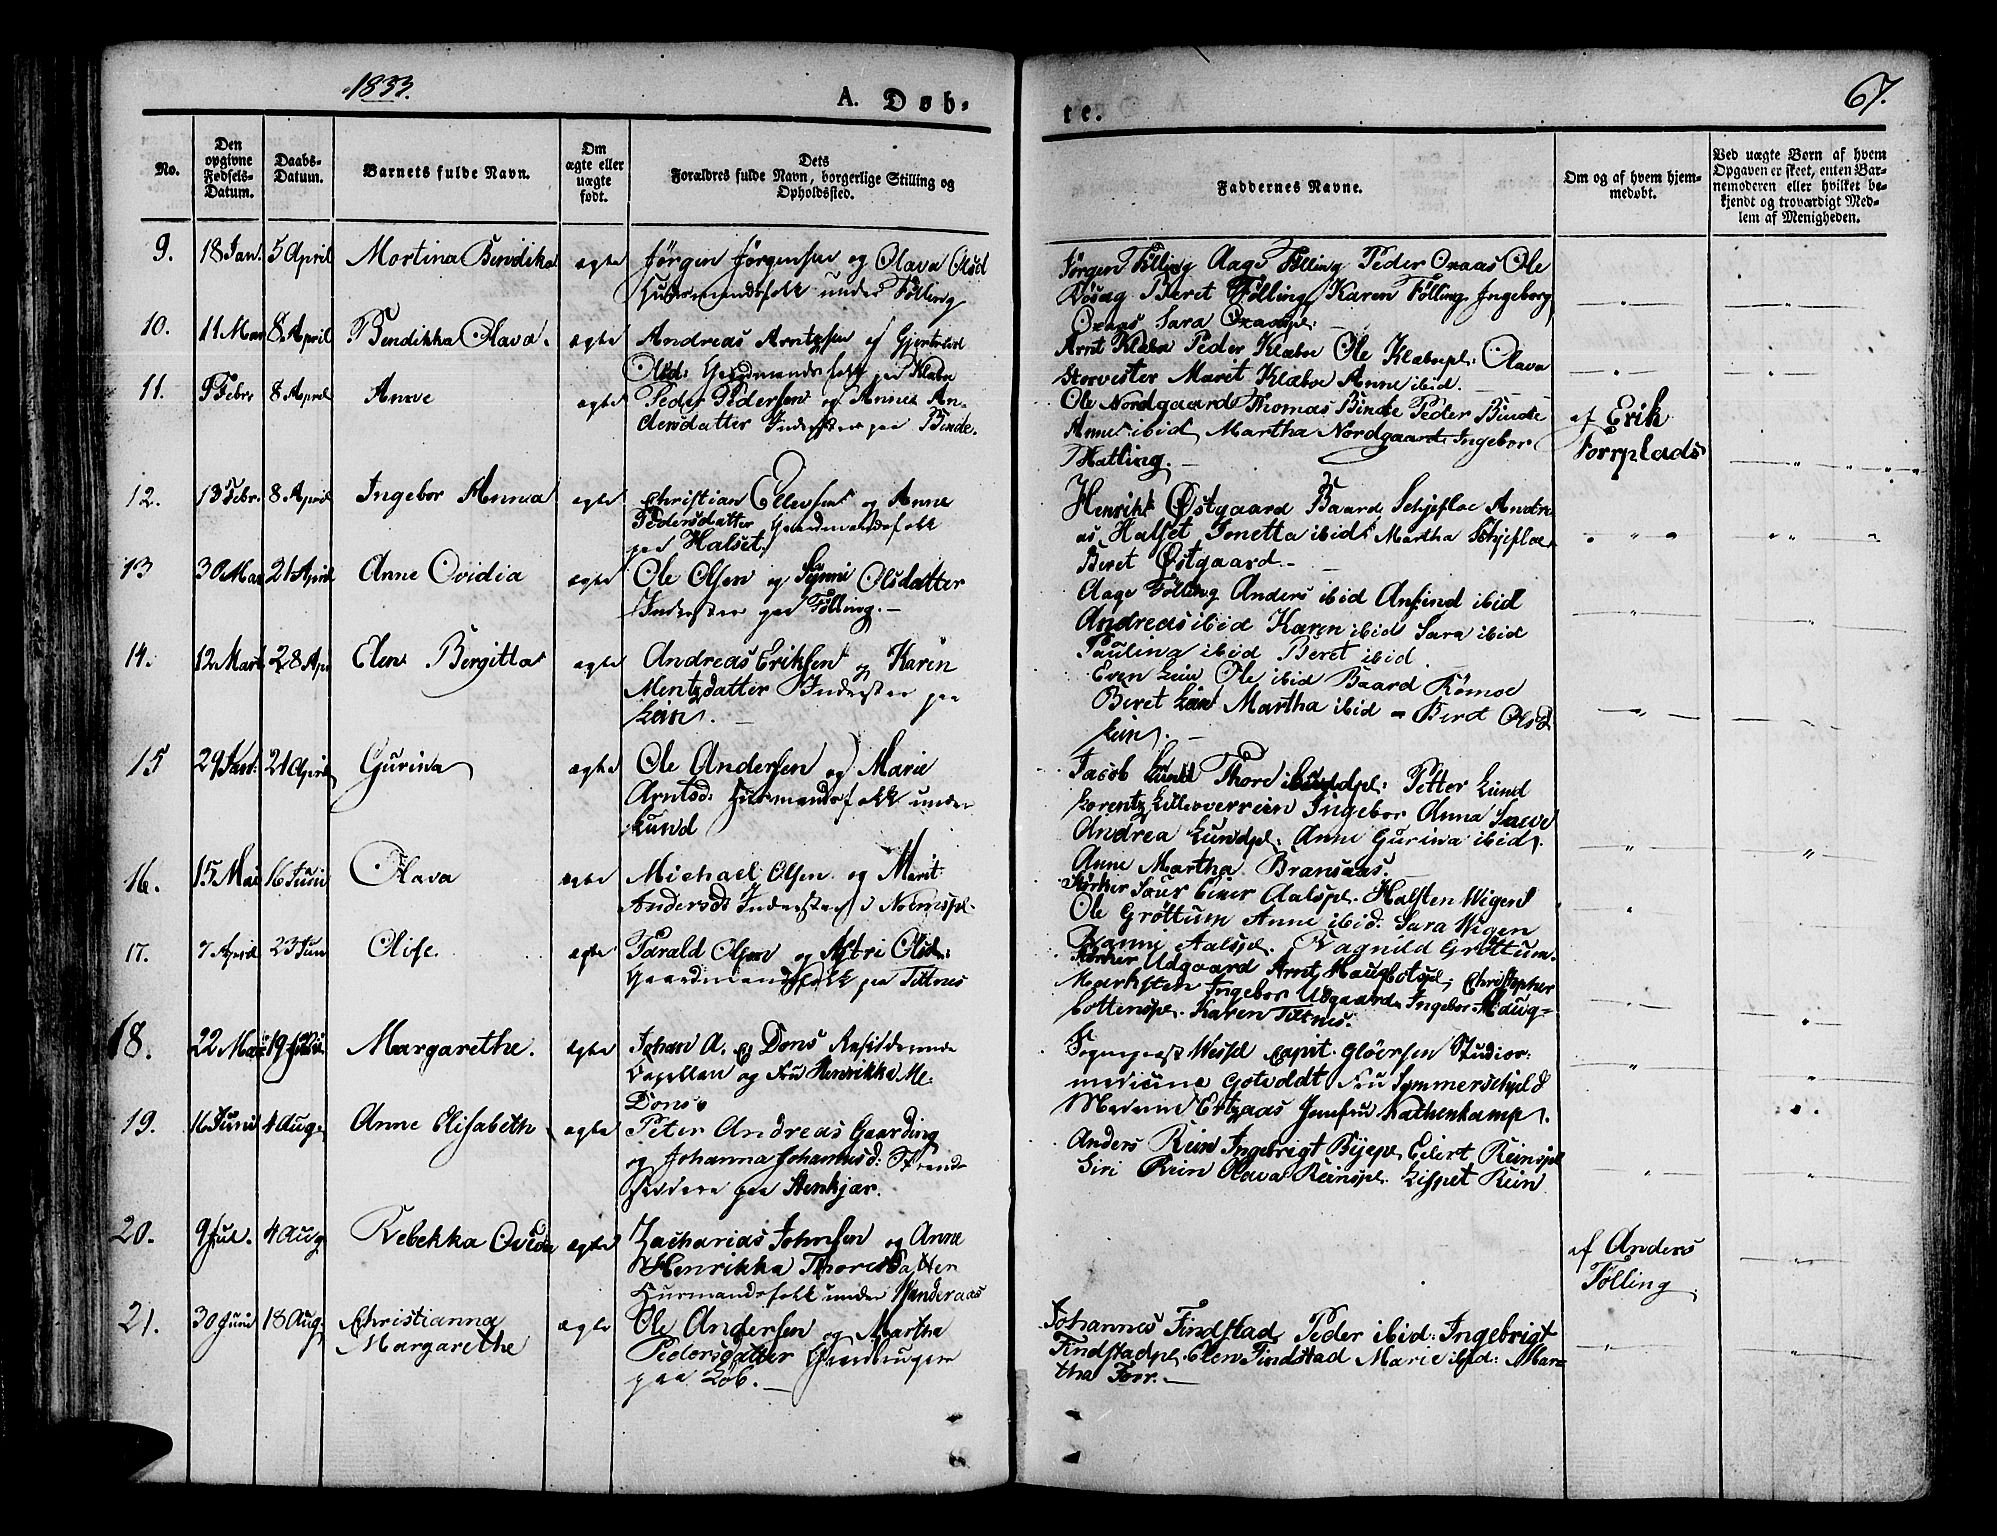 1833.
A. Døb-
te.
67.
No.
Den opgivne Fødsels-Datum.
Daabs-Datum.
Barnets fulde Navn.
Om ægte eller uægte født.
Dets Forældres fulde Navn, borgerlige Stilling og Opholdssted.
Faddernes Navne.
Om og af hvem hjem-medøbt.
Ved uægte Børn af hvem Opgaven er skeet, enten Bar-nemoderen eller hvilket be-kjendt og troværdigt Med-lem af Menigheden.
9. 18 Jan. 5 April Mortina Bendika ægte Jørgen Jørgensen og Olava Olsd
Huusmandsfolk under Følling
Jørgen Følling Aage Følling Peder Oxaas Ole
Beret Følling Karen Følling Ingeborg
Oxaas Sara
10. 11 Mar 8 April Bendikka Olava. ægte Andreas Arntzen og Gjertrud
Olsd: Gaardmandsfolk paa Klæbo
Arnt Klæbo Peder Klæboe Ole Klæbopl: Olava
Marit Klæboe Anne ibid.
11. 9 Febr 8 April Anne ægte Peder Pedersen og Anne An-
dersdatter Inderster paa Binde.
Ole Nordgaard Thomas Binde Peder Binde
Anne ibid Martha Nordgaard Ingebor
Hatling.
af Erik
Forrplads
12. 13 Febr. 8 April Ingebor Anna ægte Christian Ellevsen og Anne
Pedersdatter Gaardmandsfolk
paa Halset.
Henrik Østgaard Baard Schjefloe Andre
as Halset Jonetta ibid Martha Schjefloe
Beret Østgaard.
13 30 Mar 21 April Anne Ovidia ægte Ole Olsen og Synni Olsdatter
Inderster paa Følling.
Aage Følling Anders ibid Anfind ibid
Andreas ibid Karen ibid Sara ibid
Paulina ibid Beret ibid.
14. 12 Mart 28 Apr Elen Bergitta ægte Andreas Eriksen og Karen
Mentzdatter Inderster paa
Lein.
Even Lein Ole ibid Baard Römoe
Beret Lein Martha ibid - Beret Olsd
Lein.
15 29 Jan: 21 April Gurina ægte Ole Andersen og Marie
Arntsd: Huusmandsfolk under
Lund
Jacob Lund Thore Lundpl: Petter Lund
Lorentz Ingebor Anna
Andrea Lundpl: Anne Gurina ibid.
Anne Martha Bransaas.
16. 15 Mai 16 Juni Olava ægte Michael Olsen og Marit
Andersdt Inderster i
Aalspl. Halsten Wigen
Ole Grøttum Anne ibid: Sara Wigen
Aalspl. Ragnild Grøttum.
17. 7 April 23 Jun Olise ægte Olsen og Astri Olsd:
Gaardmandsfolk paa Tiltnes
Udgaard Arnt Christopher
Ingebor Udgaard Ingebor
Karen Tiltnes.
18. 22 Mai 19 Margarethe. ægte Johan A. Dons Residerende
Capellan og Fru Henrikke Me.
Dons.
Sogneprest Wessel Capit. Studior:
medicine Fru Sommerschjeld
Madame Jomfru
19. 16 Juni 4 Aug. Anne Elisabeth ægte Peter Andreas Gaarding
og Johanna Johannesd: Strand-
siddere paa Stenkjær.
Anders Rein Ingebrigt Byepl. Eilert Reinspl
Siri Rein Olava Reinspl. Lispet Rein
20. 9 Jul. 4 Aug Rebekka Ovidia ægte Zacharias Johnsen og Anna
Henrikka Thoresdatter
Huusmandsfolk under
af Anders
Følling
21. 30 Juni 18 Aug. Christianna
Margarethe
ægte Ole Andersen og Martha
Pedersdatter Gaardbrugere
paa Løb.
Johannes Findstad Peder ibid: Ingebrigt
Findstadpl. Elen Findstad Marie ibid: Mar-
tha Forr.